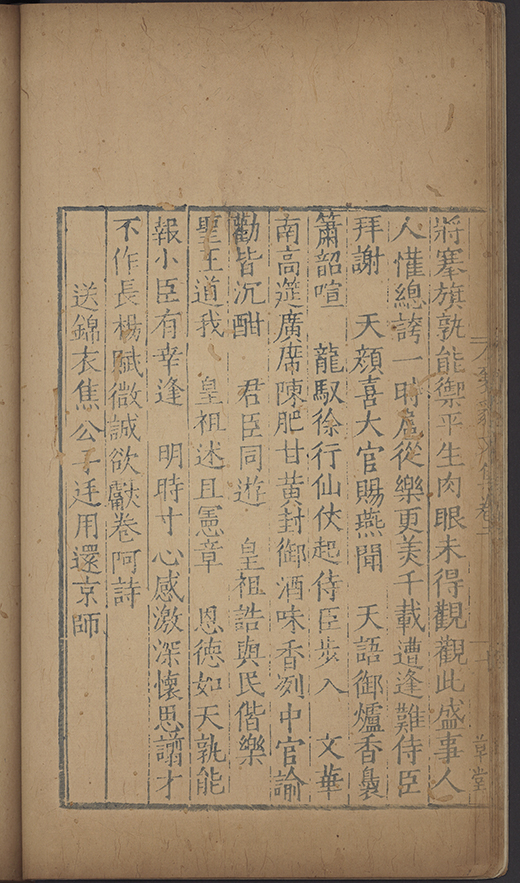 將搴旗孰能禦平生肉眼未得觀觀此盛事人
人懽總誇一時扈從樂更美千載遭逢難侍臣
拜謝　天顏喜大官賜燕聞　天語御爐香裊
簫韶喧　龍馭徐行仙仗起侍臣步入　文華
南高筵廣席陳肥甘黃封御酒味香冽中官諭
勸皆沉酣　君臣同遊　皇祖誥與民偕樂
聖王道我　皇祖述且憲章　恩德如天孰能
報小臣有幸逢　明時寸心感激深懷思謭才
不作長楊賦微誠欲獻卷阿詩
送錦衣焦公子廷用還京師
草堂